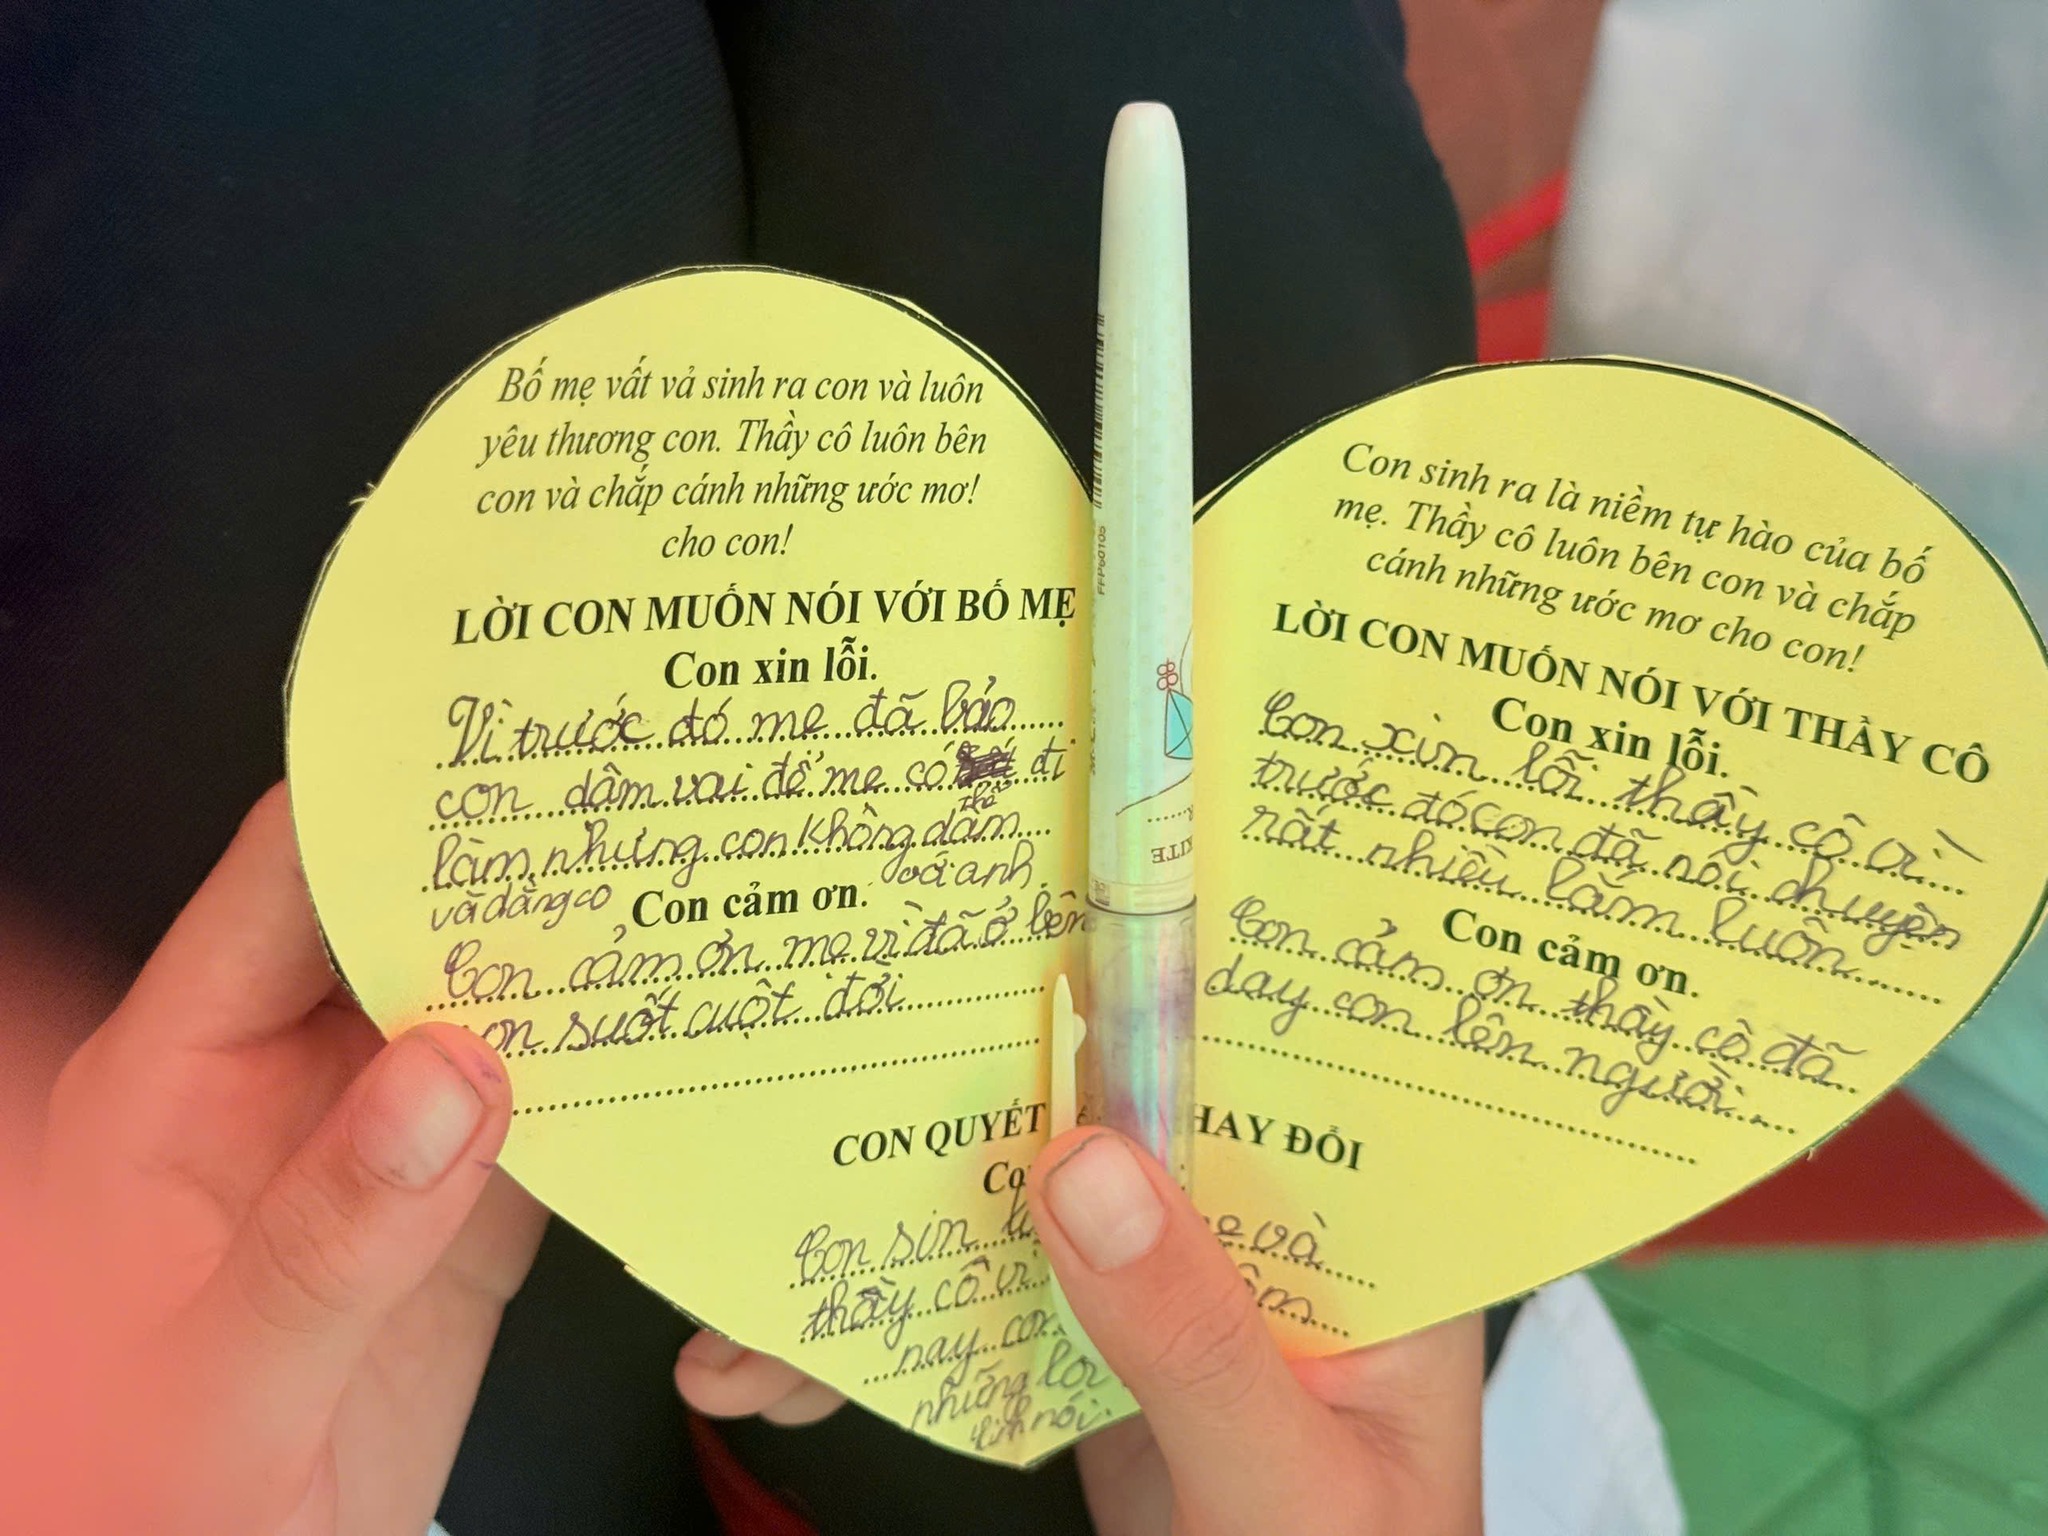 Bố mẹ vất vả sinh ra con và luôn
yêu thương con. Thầy cô luôn bên
con và chắp cánh những ước mơ!
cho con!
LỜI CON MUỐN NÓI VỚI BỐ MẸ
Con xin lỗi.
Vì trước đó mẹ đã bảo
con dấm vai để mẹ có đi
làm nhưng con không dấm
và dằng co với anh
Con cảm ơn.
Con cảm ơn mẹ vì đã ở bên
con suốt cuột đời
Con sinh ra là niềm tự hào của bố
mẹ. Thầy cô luôn bên con và chắp
cánh những ước mơ cho con!
LỜI CON MUỐN NÓI VỚI THẦY CÔ
Con xin lỗi.
Con xin lỗi thầy cô vì
trước đó con đã nói chuyện
rất nhiều lắm luôn
Con cảm ơn.
Con cảm ơn thầy cô đã
day con lên người.
CON QUYẾT HAY ĐỔI
Con sin và
thầy cô vì
nay con
những lời
nói.
FFP60105
KITE